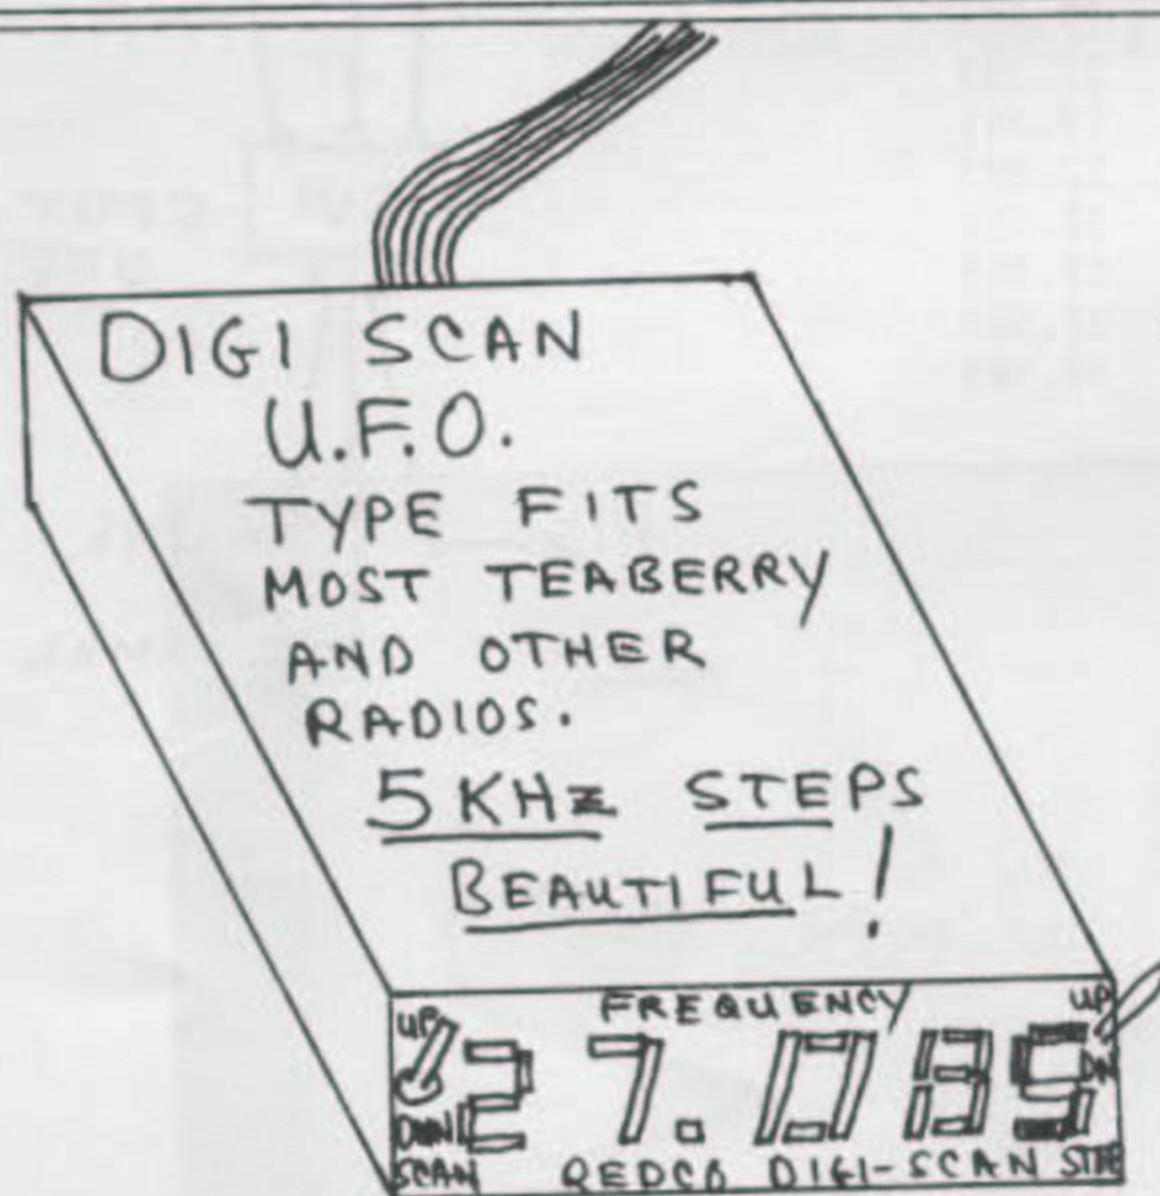 DIGI SCAN
U.F.O.
TYPE FITS
MOST TEABERRY
AND OTHER
RADIOS.
5 KHz STEPS
BEAUTIFUL!
FREQUENCY
UP
UP
27.085
DN
SCAN
REDCO DIGI-SCAN